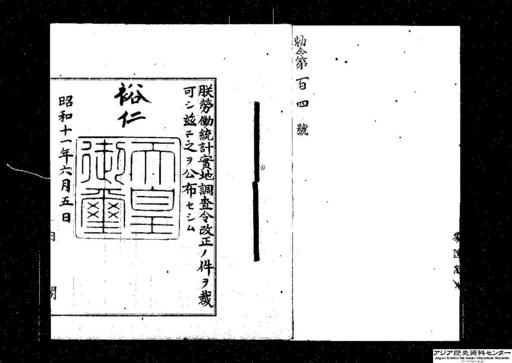 勅令第百四號
朕勞働統計實地調査令改正ノ件ヲ裁
可シ茲ニ之ヲ公布セシム
裕仁
天皇
御璽
昭和十一年六月五日
アジア歴史資料センター
Japan Center for Asian Historical Records